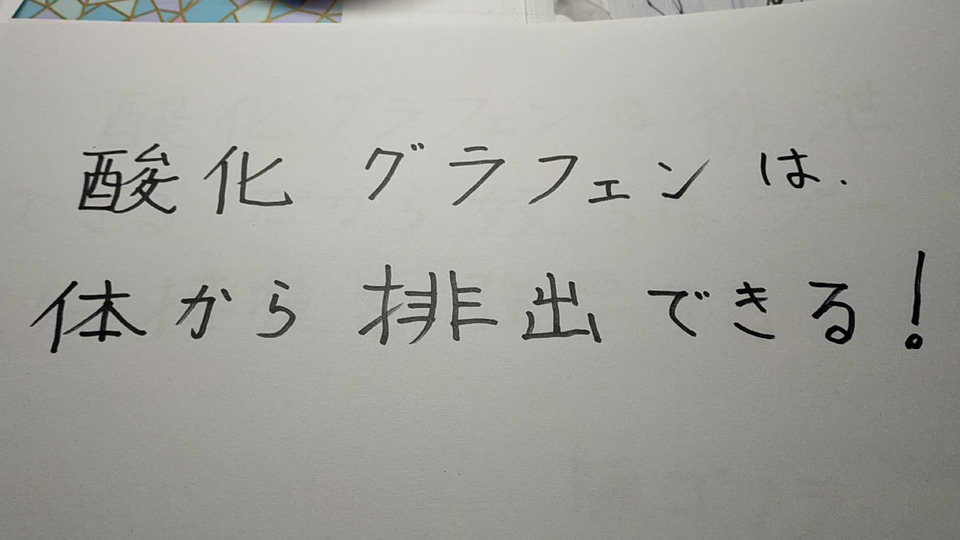 酸化グラフェンは、
体から排出できる!